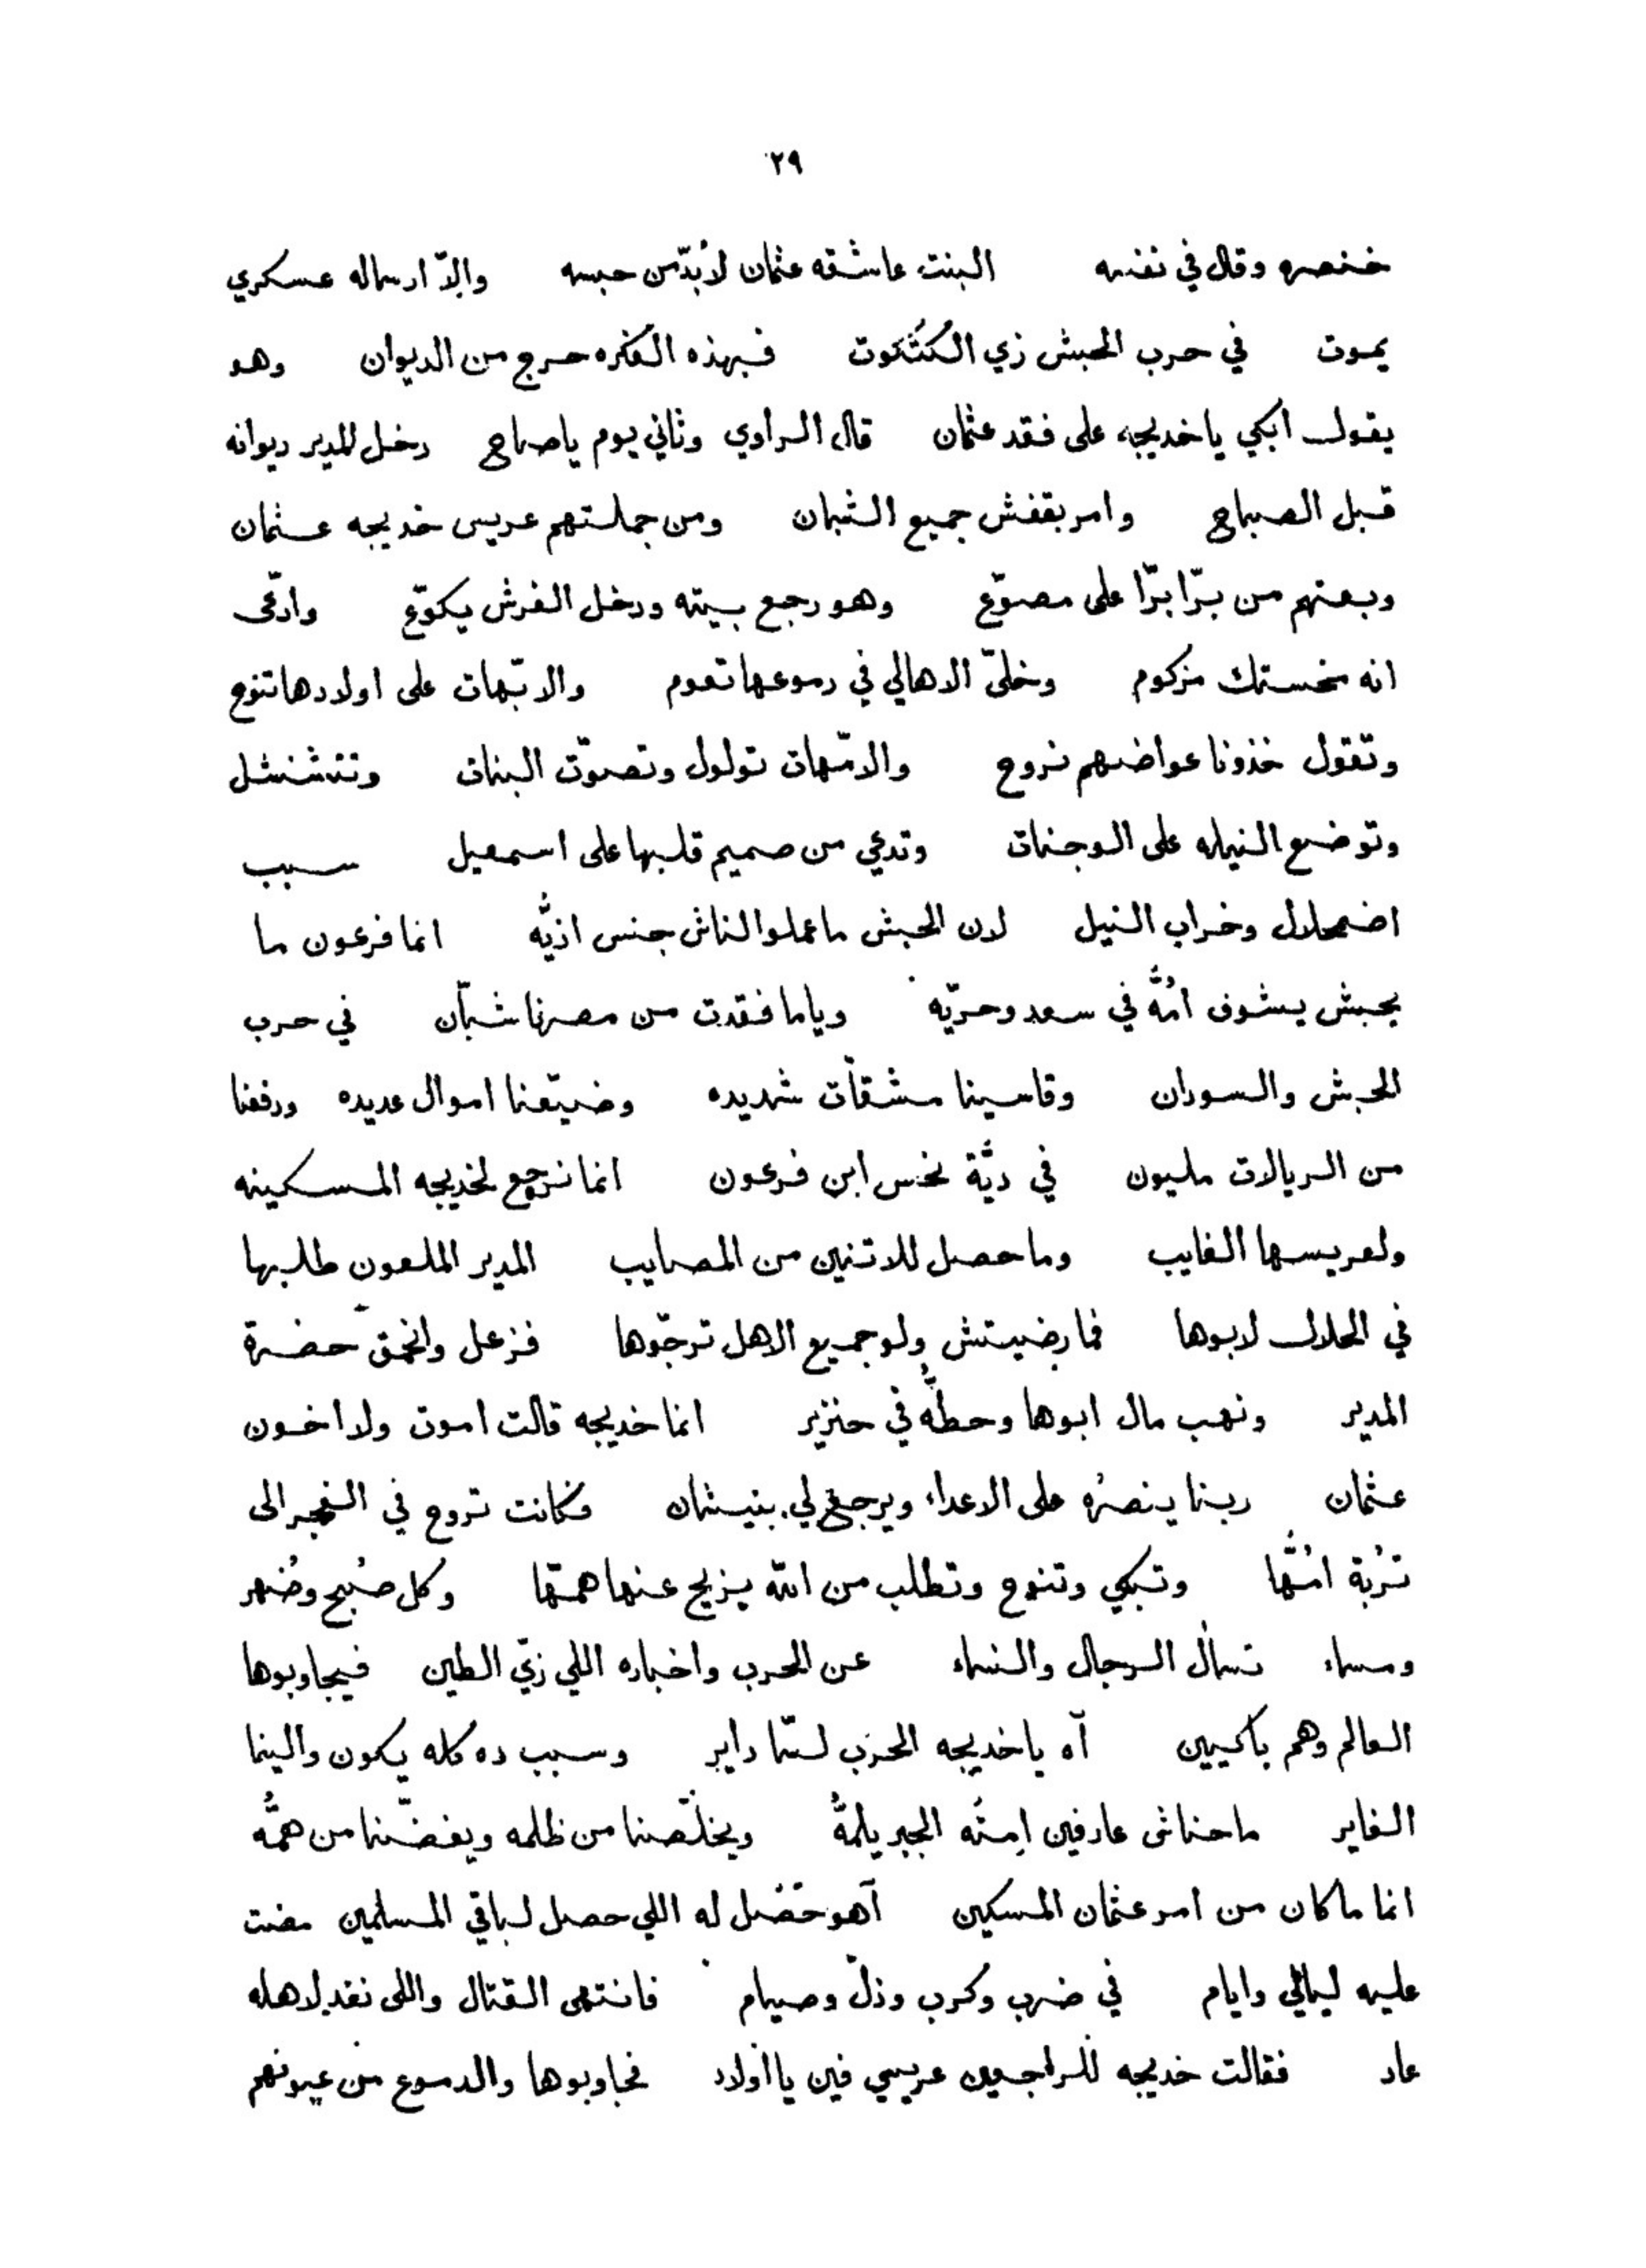 ٢٩
خنصره وقال في نفسه البنت عاشقه عثمان لابُدّ من حبسه والّا ارساله عسكري
يموت في حرب الحبش زي الكُتْكوت فبهذه الفكره خرج من الديوان وهو
يقول ابكي يا خديجه على فقد عثمان قال الراوي وثاني يوم ياصاح دخل المدير ديوانه
قبل الصباح وامر بقفش جميع الشبان ومن جملتهم عريس خديجه عثمان
وبعتهم من برّا برّا على مصوّع وهو رجع بيته ودخل الفرش يكوّع وادّعى
انه مخستك مزكوم وخلّى الاهالي في دموعها تعوم والابّهات على اولادها تنوح
وتقول خذونا عواضهم نروح والامّهات تولول وتصوّت البنات وتتشنشل
وتوضع النيله على الوجنات وتدعي من صميم قلبها على اسمعيل سبب
اضمحلال وخراب النيل لان الحبش ما عملوا لناش جنس اذيّه انما فرعون ما
يحبش يشوف امُّه في سعد وحرّيّه وياما فقدت من مصرنا شبّان في حرب
الحبش والسودان وقاسينا مشقّات شديده وضيّعنا اموال عديده ودفعنا
من الريالات مليون في ديَّة نخس ابن فرعون انما نرجع لخديجه المسكينه
ولعريسها الغايب وما حصل للاتنين من المصايب المدير الملعون طلبها
في الحلال لابوها فما رضيتش ولو جميع الاهل ترجّوها فزعل وانحمق حضرة
المدير ونهب مال ابوها وحطُّه في جنزير انما خديجه قالت اموت ولا اخون
عثمان ربنا ينصرُه على الاعداء ويرجع لي بنيشان فكانت تروح في الفجر الى
تُربة امُّها وتبكي وتنوح وتطلب من الله يزيح عنها همّها وكل صُبح وضُهر
ومساء تسأل الرجال والنساء عن الحرب واخباره اللي زيّ الطين فيجاوبوها
العالم وهم باكيين آه يا خديجه الحرب لسّا داير وسبب ده كله يكون والينا
الغاير ما حناش عارفين امتُه الجبر يلمُّه ويخلّصنا من ظلمه ويفضّنا من همُّه
انما ما كان من امر عثمان المسكين آهو حَصَل له اللي حصل لباقي المسلمين مضت
عليه ليالي وايام في ضرب وكرب وذلّ وصيام فانتهى القتال واللي نفد لاهله
عاد فقالت خديجه للراجعين عريسي فين يا اولاد فجاوبوها والدموع من عيونهم